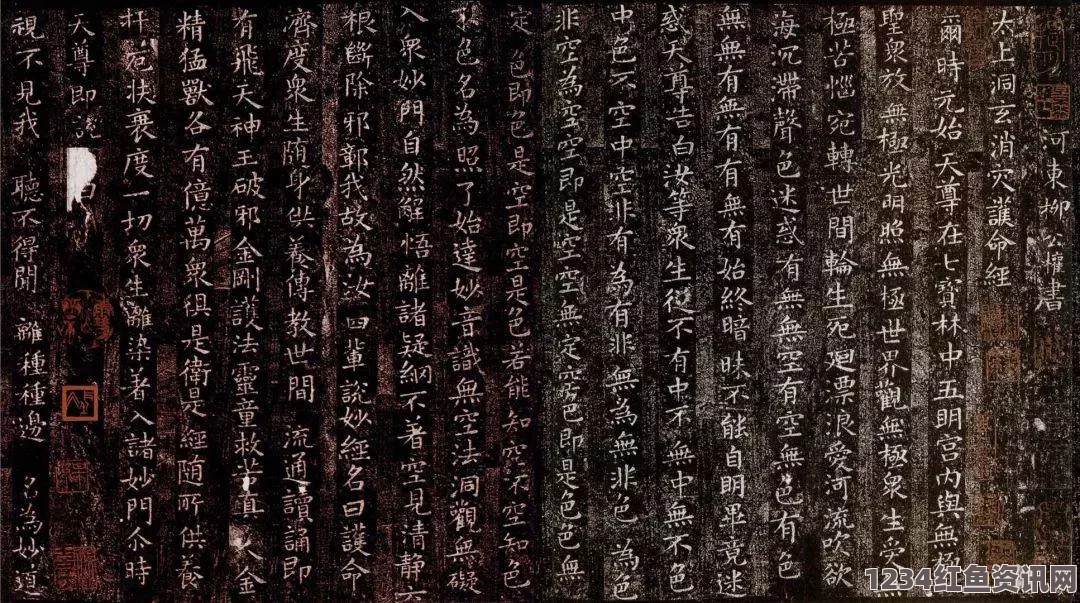 河東柳公權書
太上洞玄消灾護命經
爾時元始天尊在七寶林中五明宮內與無極
聖衆放無極光明照無極世界觀無極衆生受無
極苦惱宛轉世間輪生死迴漂浪愛河流吹欲
海沉滯聲色迷惑有無無空有空無色有色
無無有無有有無有始終暗昧不能自明畢竟迷
惑天尊告曰汝等衆生從不有中不無中無不色
中色不空中空非有為有非無為無非色為色
非空為空空即是空空無定空色即是色色無
定色即色是空即空是色若能知空不空知色
不色名為照了始達妙音識無空法洞觀無礙
入衆妙門自然解悟離諸疑網不著空見清靜六
根斷除邪鄣我故為汝四輩說妙經名曰護命
濟度衆生随身供養傳教世間 流通讀誦即
有飛天神王破邪金剛護法靈童救苦真人金
精猛獸各有億萬衆俱是衛是經随所供養
扞厄扶衰度一切衆生離染著入諸妙門尒時
天尊即說 曰
視不見我 聽不得聞 離種種邊 名為妙道
1234红鱼资讯网